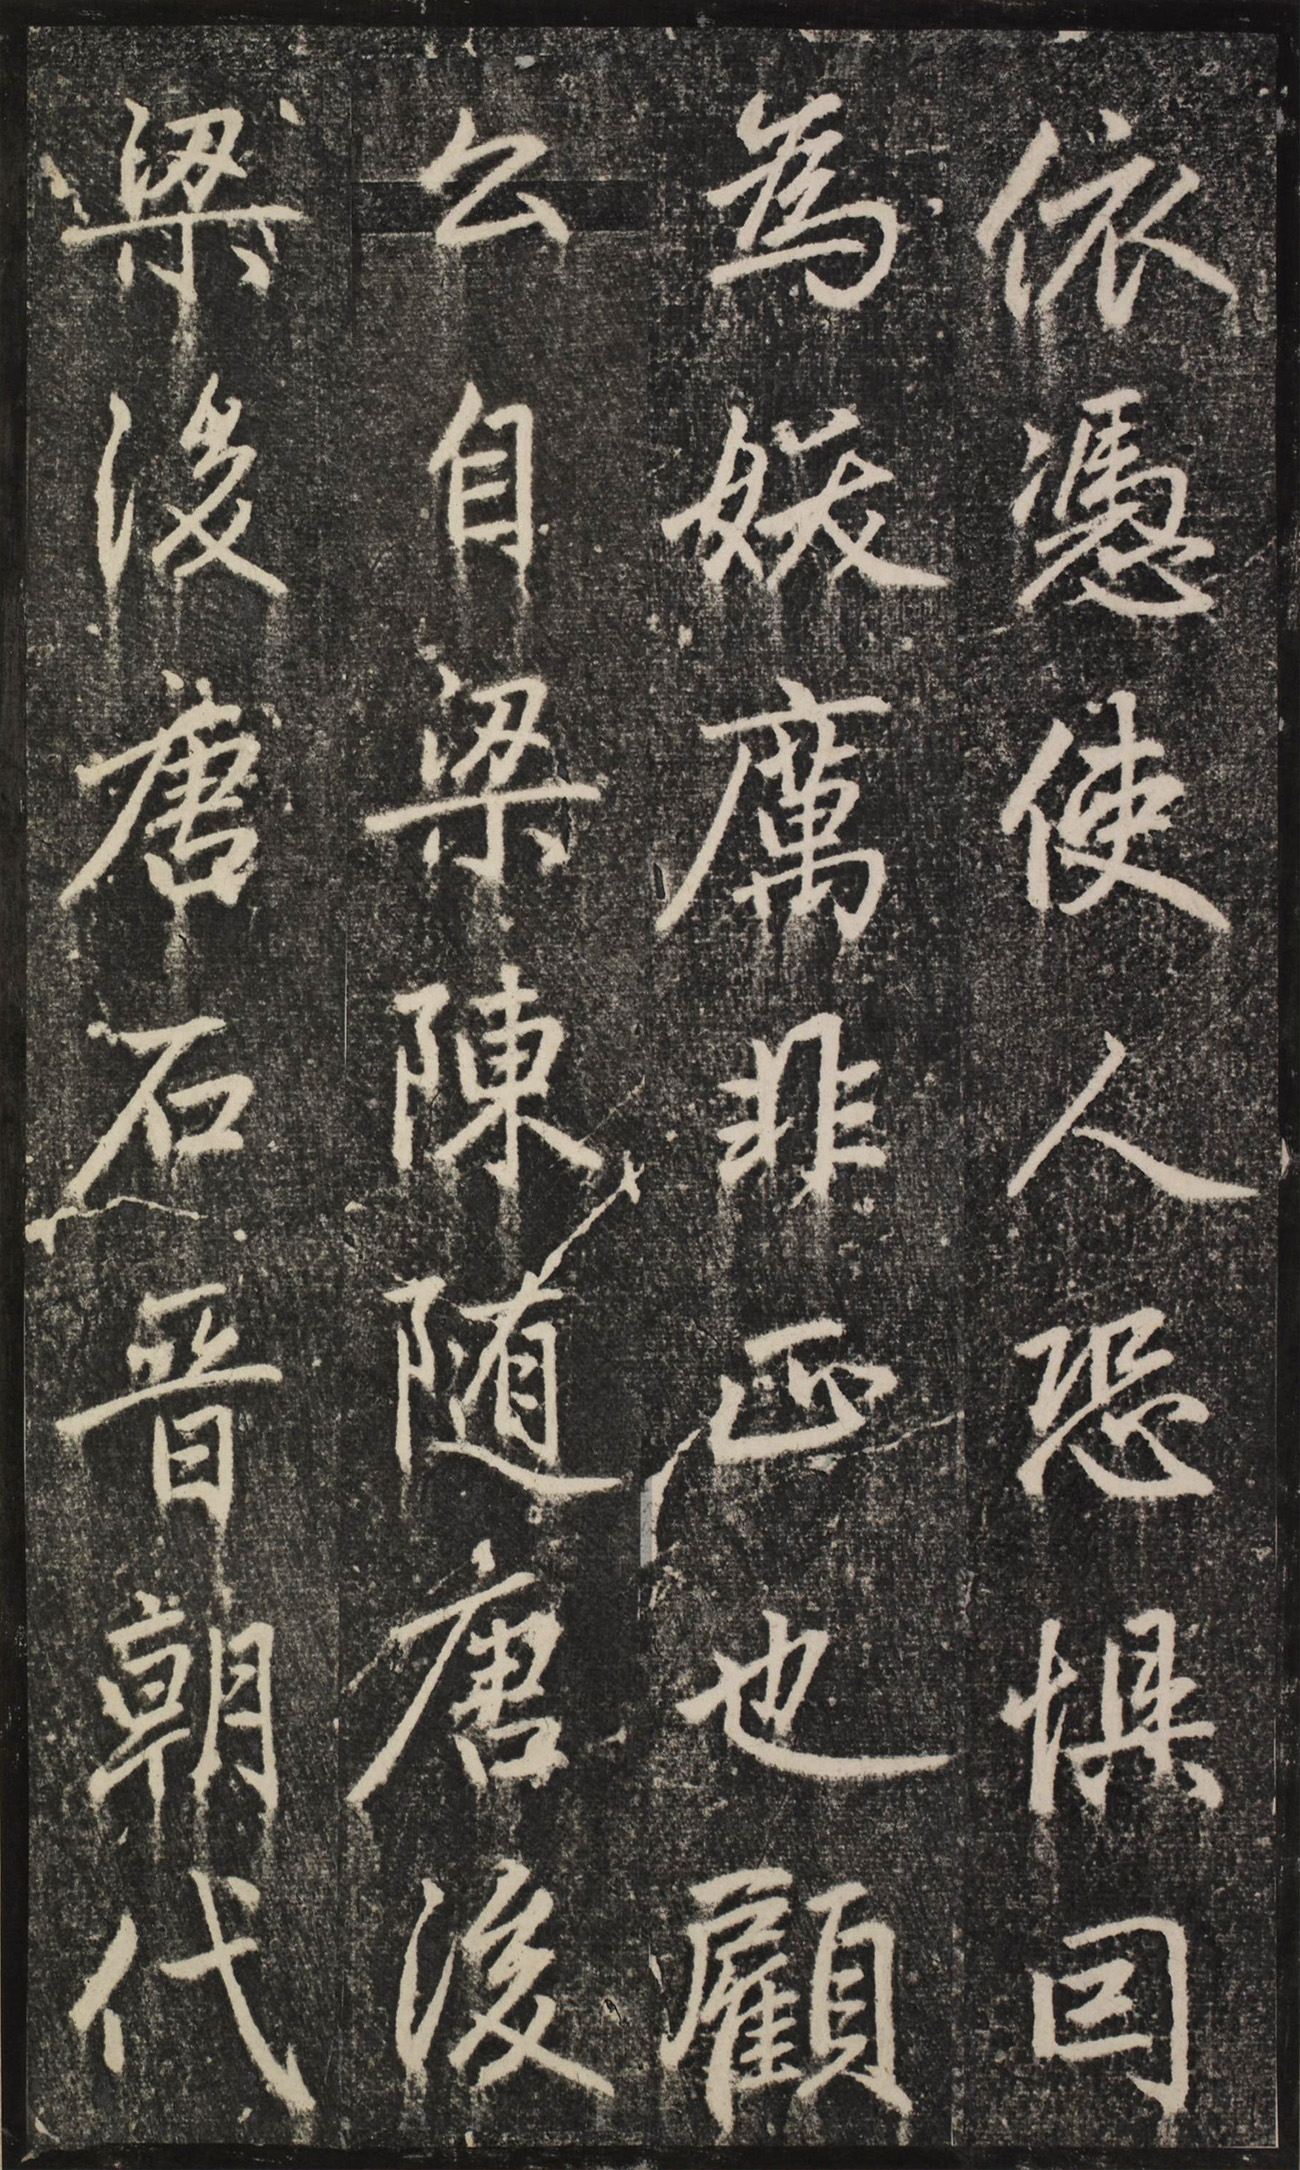 依憑使人恐惧囙
為妖厲非正也顧
公自梁陳随唐後
梁後唐石晉朝代